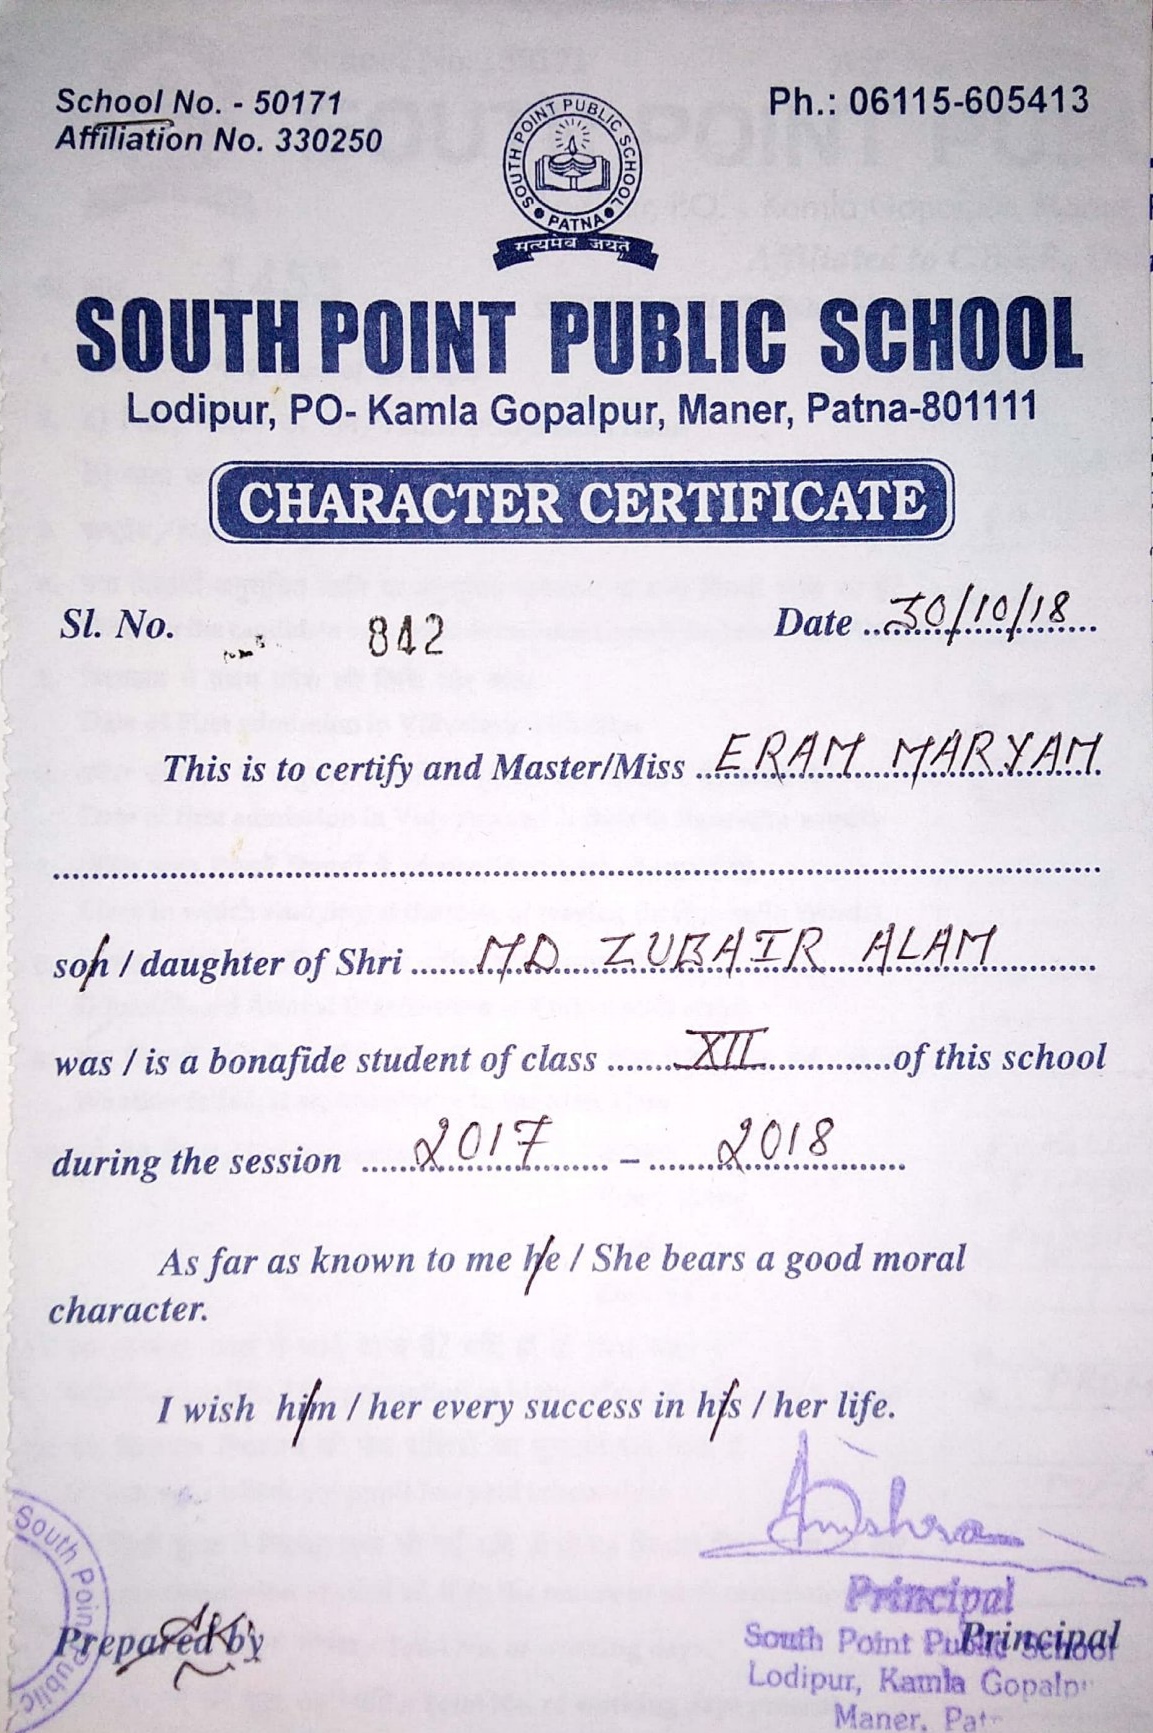 School No. - 50171
Affiliation No. 330250
Ph.: 06115-605413
SOUTH POINT PUBLIC SCHOOL
PATNA
सत्यमेव जयते
SOUTH POINT PUBLIC SCHOOL
Lodipur, PO- Kamla Gopalpur, Maner, Patna-801111
CHARACTER CERTIFICATE
Sl. No. 842
Date 30/10/18
This is to certify and Master/Miss ERAM MARYAM
son / daughter of Shri MD ZUBAIR ALAM
was / is a bonafide student of class XII of this school
during the session 2017 – 2018
As far as known to me he / She bears a good moral
character.
I wish him / her every success in his / her life.
South Point Public
Prepared by
Principal
Principal
South Point Public School
Lodipur, Kamla Gopalp
Maner, Pat